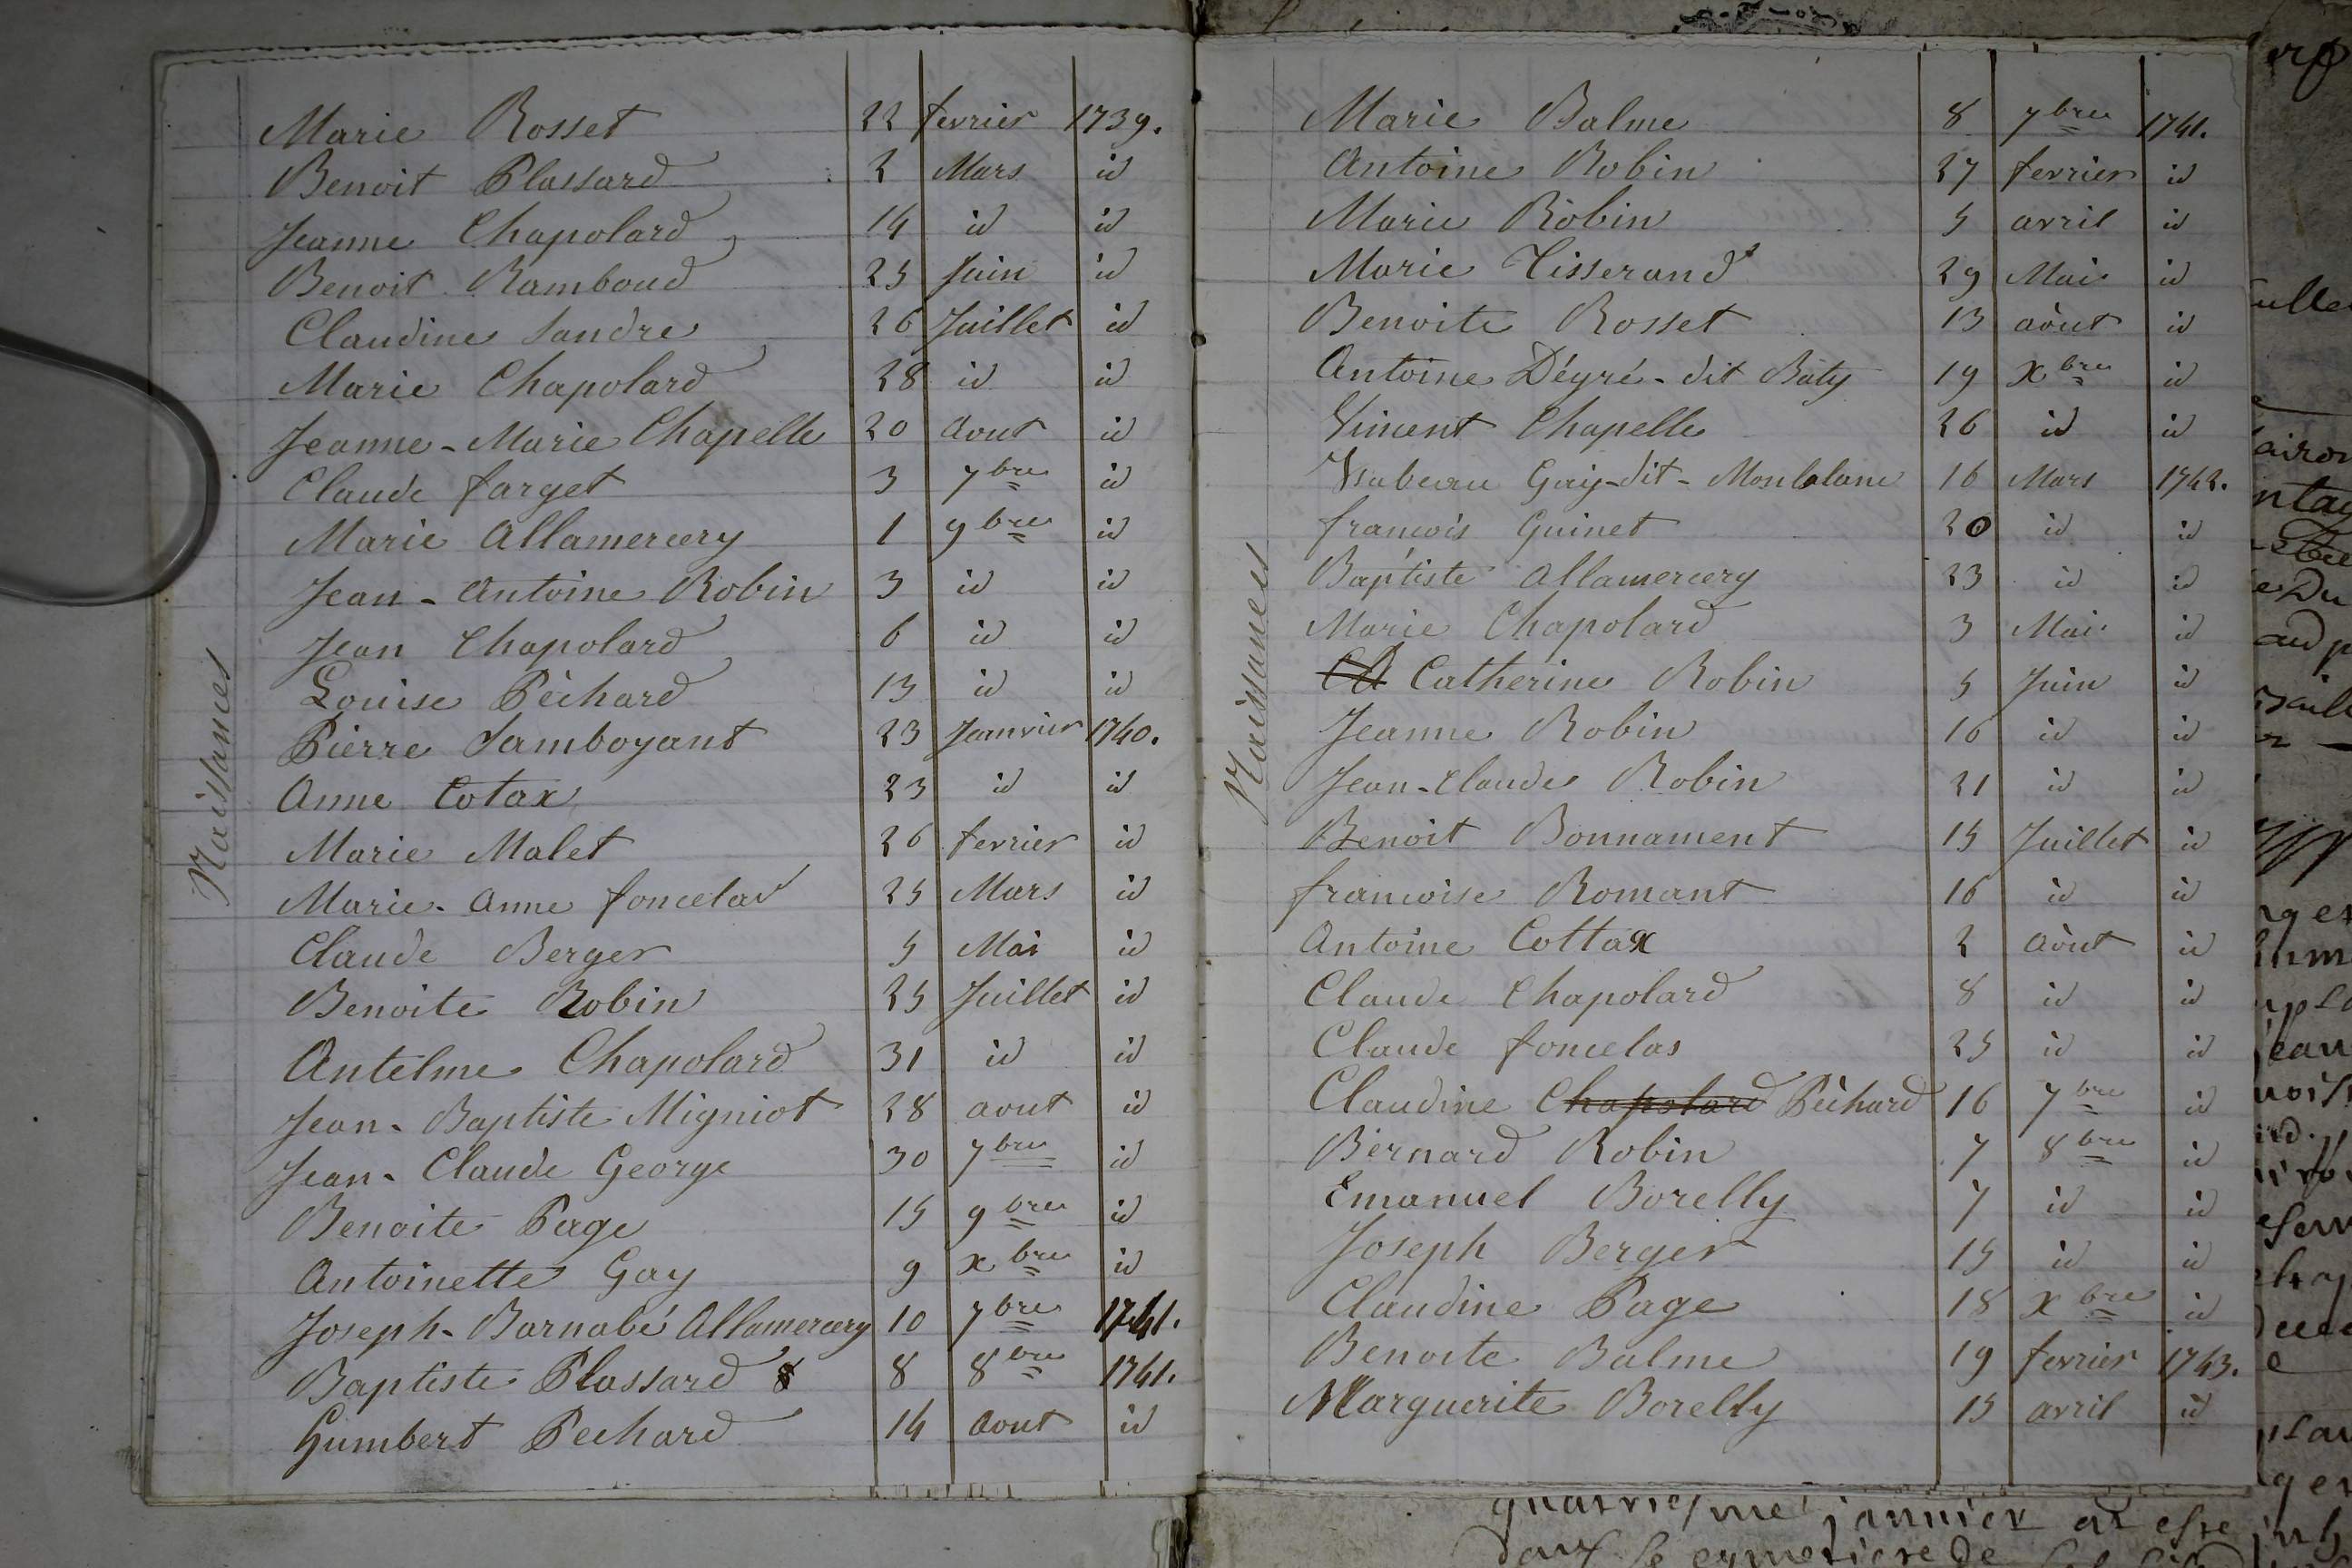 Naissances
Marie Rosset 22 fevrier 1739.
Benoit Plassard 2 Mars id
Jeanne Chapolard 14 id id
Benoit Ramboud 25 Juin id
Claudine Sandre 26 Juillet id
Marie Chapolard 28 id id
Jeanne-Marie Chapelle 20 Aout id
Claude farget 3 7bre id
Marie Allamercery 1 9bre id
Jean-Antoine Robin 3 id id
Jean Chapolard 6 id id
Louise Pèchard 13 id id
Pierre Samboyant 23 Janvier 1740.
Anne Cotax 23 id id
Marie Malet 26 fevrier id
Marie-Anne foncelas 25 Mars id
Claude Berger 5 Mai id
Benoite Robin 25 Juillet id
Antelme Chapolard 31 id id
Jean-Baptiste Migniot 28 aout id
Jean-Claude George 30 7bre id
Benoite Page 15 9bre id
Antoinette Gay 9 xbre id
Joseph-Barnabé Allamercery 10 7bre 1741.
Baptiste Plassard 8 8 8bre 1741.
Humbert Pechard 14 Aout id
Naissances
Marie Balme 8 7bre 1741.
Antoine Robin 27 fevrier id
Marie Robin 5 avril id
Marie Tisserand 29 Mai id
Benoite Rosset 13 aòut id
Antoine Dégré-dit Baty 19 xbre id
Vincent Chapelle 26 id id
Isabeau Gay-dit-Montblanc 16 Mars 1742.
francois Guinet 20 id id
Baptiste Allamercery 23 id id
Marie Chapolard 3 Mai id
Catherine Robin 5 Juin id
Jeanne Robin 16 id id
Jean-Claude Robin 21 id id
Benoit Bonnament 15 Juillet id
francoise Romant 16 id id
Antoine Cottax 2 Aòut id
Claude Chapolard 8 id id
Claude foncelas 25 id id
Claudine Chapolard Pèchard 16 7bre id
Bernard Robin 7 8bre id
Emanuel Borelly 7 id id
Joseph Berger 15 id id
Claudine Page 18 xbre id
Benoite Balme 19 fevrier 1743.
Marguerite Borelly 15 avril id